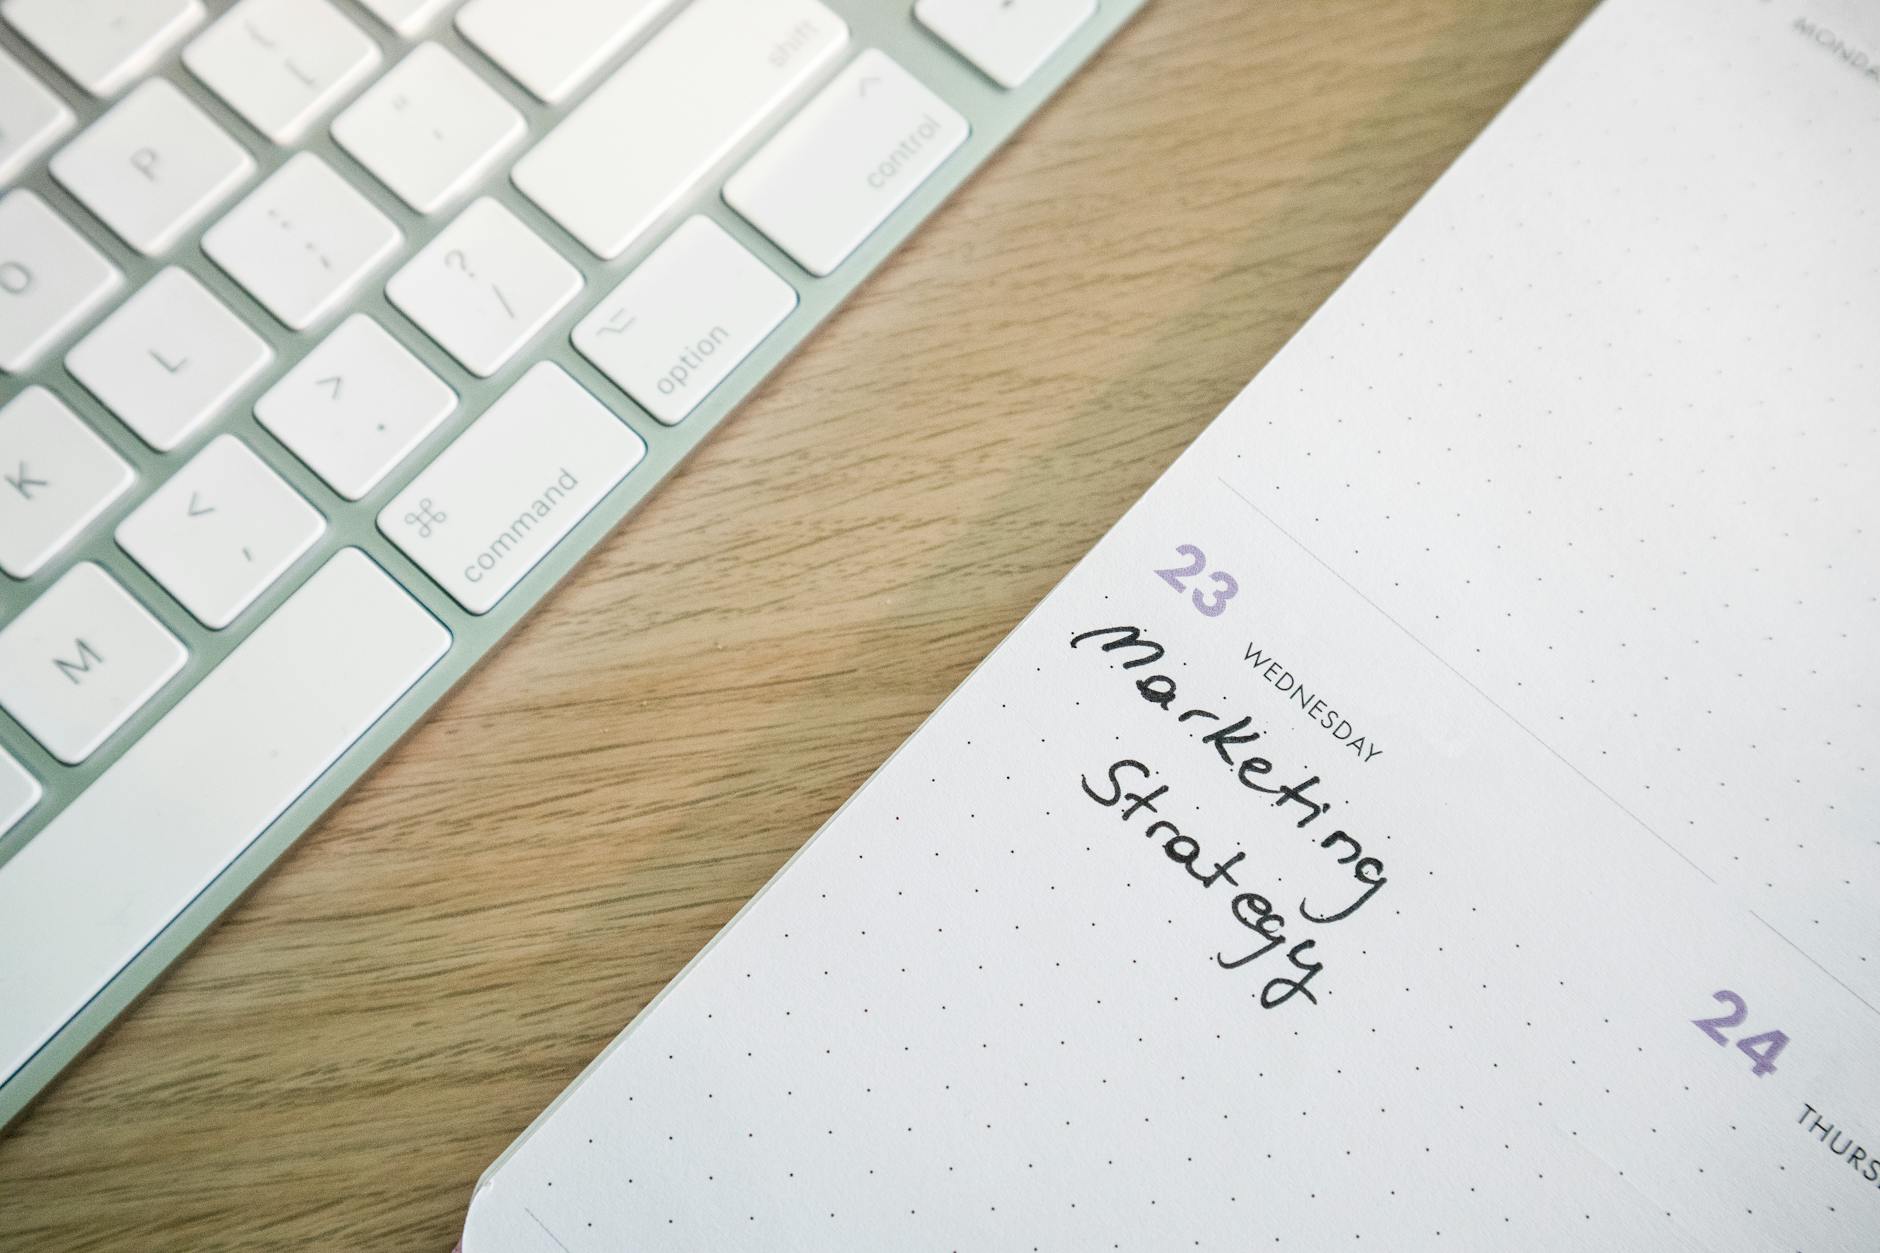 shift
control
option
command
P
O
L
K
M
{
[
"
'
:
;
?
/
>
.
<
,
^
⌥
⌘
23
WEDNESDAY
Marketing
Strategy
24